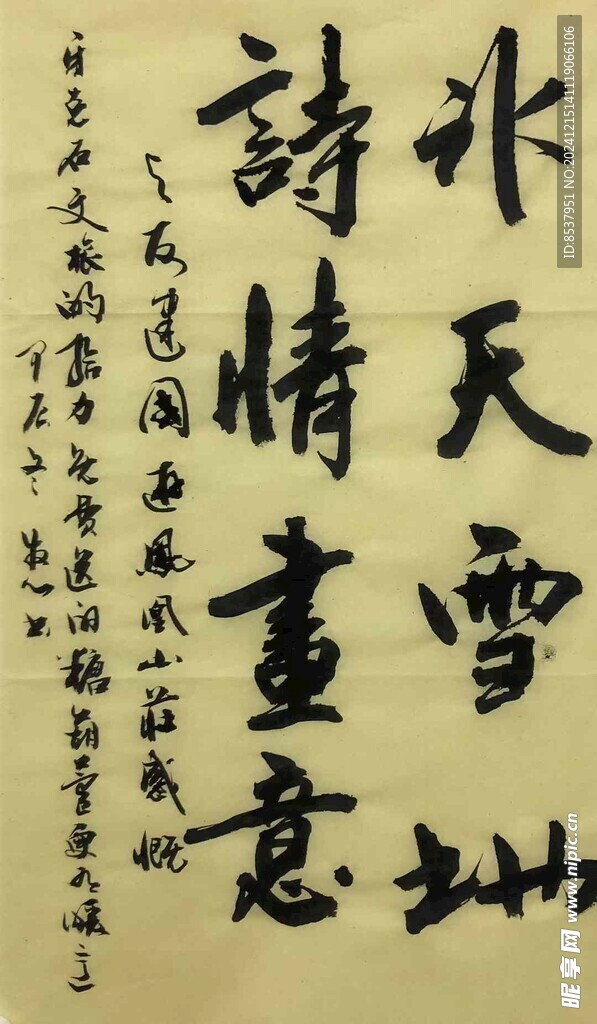 冰天雪地
詩情畫意
与友建國遊鳳凰山莊感慨
牙克石文旅的給力免費送的糖葫蘆更有暖意
甲辰冬 書
ID:8537951 NO:20241215141119066106
昵享网 www.nipic.cn